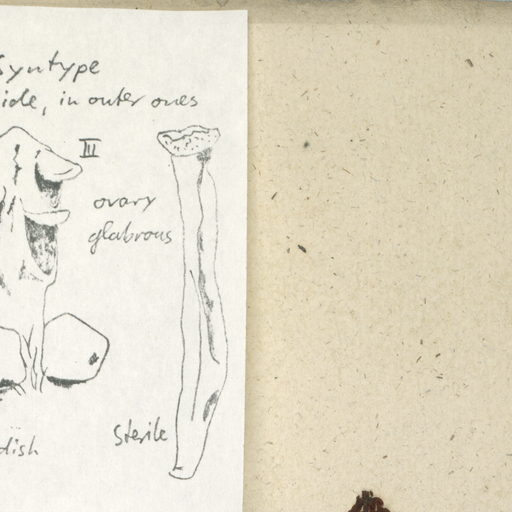 Syntype
in outer ones
III
ovary
glabrous
Sterile